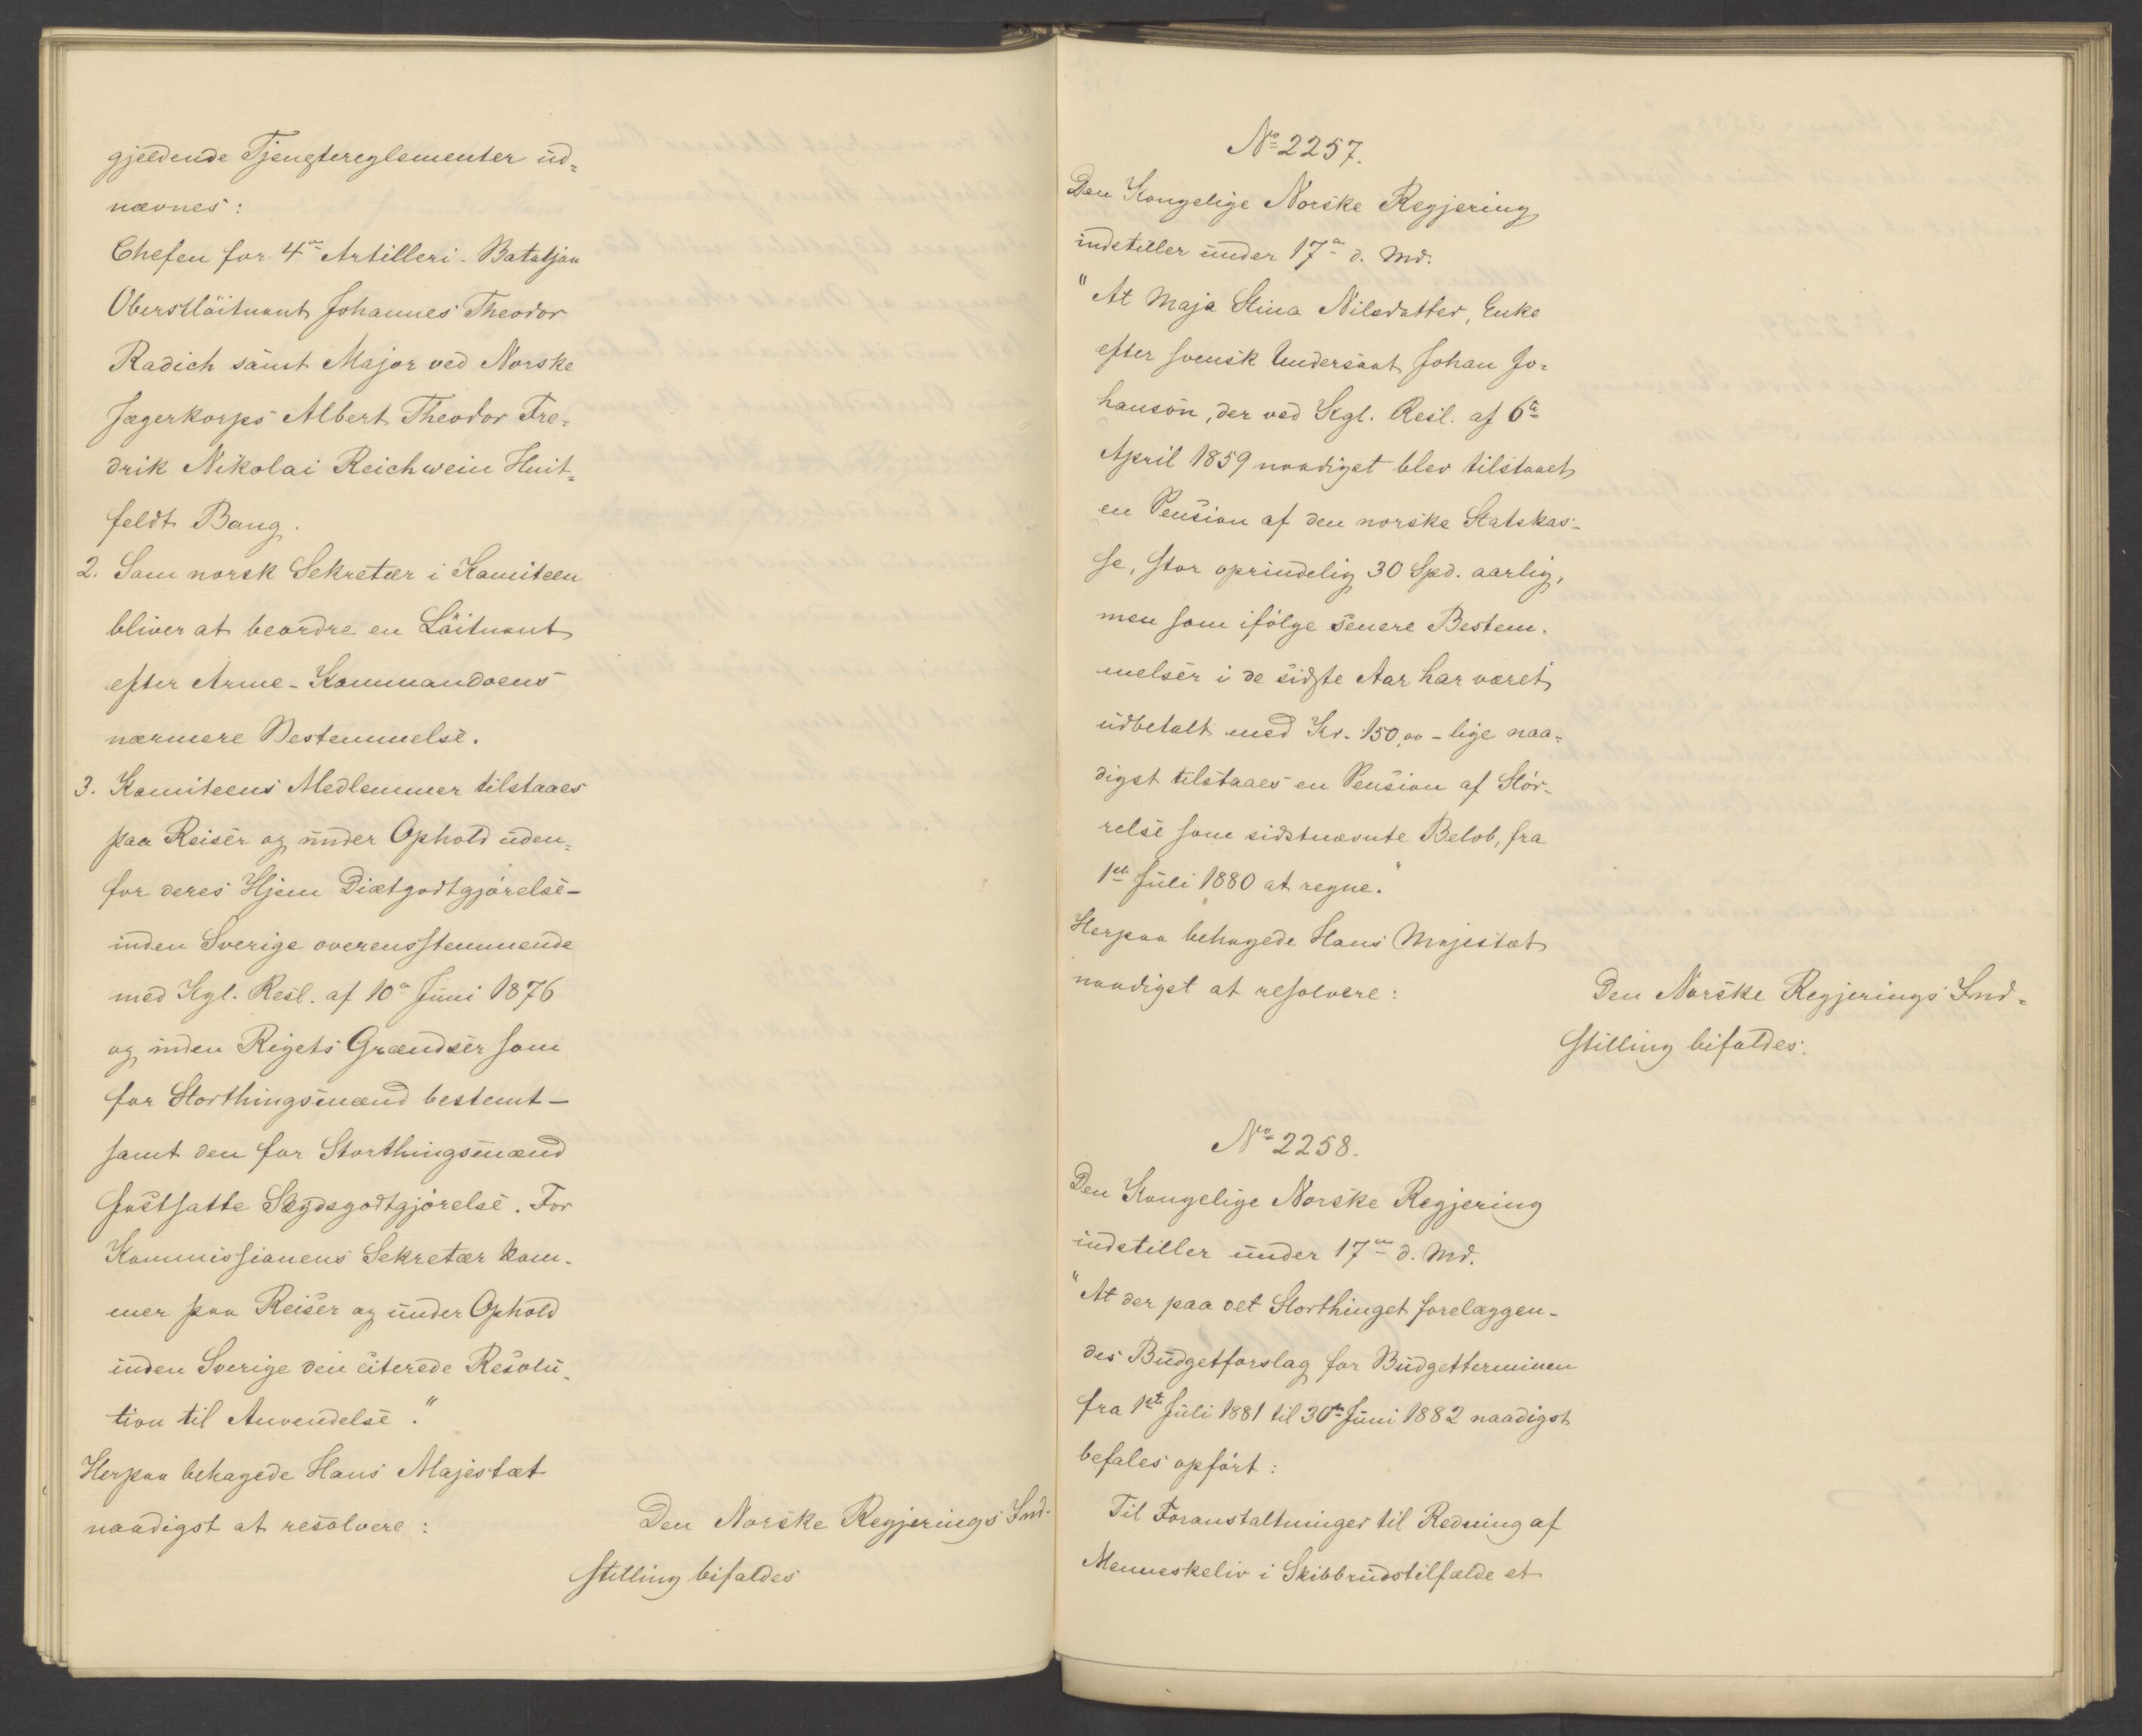 gjeldende Tjenstereglementer ud=
nævnes:
Chefen for 4de Artilleri-Bataljon
Oberstlöitnant Johannes Theodor
Radich samt Major ved Norske
Jægerkorps Albert Theodor Fre=
drik Nikolai Reichwein Huit=
feldt Bang.
2. Som norsk Sekretær i Komiteen
bliver at beordre en Löitnant
efter Arme-Kommandoens
nærmere Bestemmelse.
3. Komiteens Medlemmer tilstaaes
paa Reiser og under Ophold uden=
for deres Hjem Diætgodtgjörelse -
inden Sverige overensstemmende
med Kgl. Resl. af 10de Juni 1876
og inden Rigets Grændser som
for Storthingsmænd bestemt -
samt den for Storthingsmænd
fastsatte Skydsgodtgjörelse. For
Kommissionens Sekretær kom-
mer paa Reiser og under Ophold
inden Sverige den citerede Resolu-
tion til Anvendelse."
Herpaa behagede Hans Majestæt
naadigst at resolvere:
Den Norske Regjerings Ind-
stilling bifaldes
No 2257.
Den Kongelige Norske Regjering
indstiller under 17de d. Md.
"At Maja Stina Nilsdatter, Enke
efter svensk Undersaat Johan Jo=
hanson, der ved Kgl. Resl. af 6te
April 1859 naadigst blev tilstaaet
en Pension af den norske Statskas-
se, stor oprindelig 30 Spd. aarlig,
men som ifölge senere Bestem-
melser i de sidste Aar har været
udbetalt med Kr. 150,00 - lige naa=
digst tilstaaes en Pension af Stör-
relse som sidstnævnte Belöb, fra
1ste Juli 1880 at regne."
Herpaa behagede Hans Majestæt
naadigst at resolvere:
Den Norske Regjerings Ind-
stilling bifaldes.
No 2258.
Den Kongelige Norske Regjering
indstiller under 17de d. Md.
"At der paa det Storthinget forelæggen-
des Budgetforslag for Budgetterminen
fra 1ste Juli 1881 til 30te Juni 1882 naadigst
befales opfört:
Til Foranstaltninger til Redning af
Menneskeliv i Skibbrudstilfælde et